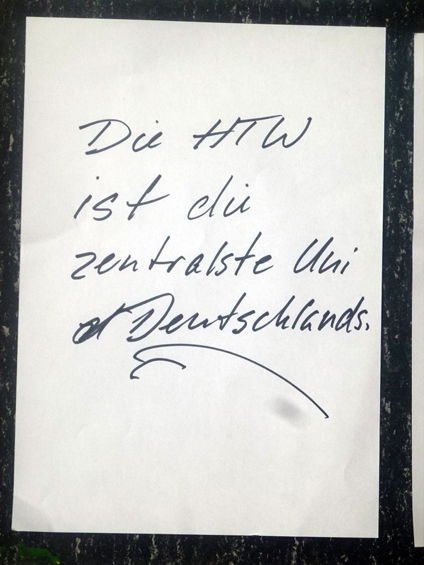 Die HTW
ist die
zentralste Uni
Deutschlands.